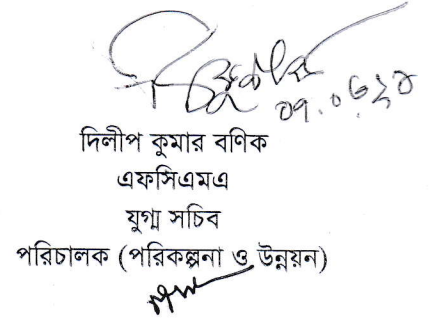 ০৭.০৬.২০
দিলীপ কুমার বণিক
এফসিএমএ
যুগ্ম সচিব
পরিচালক (পরিকল্পনা ও উন্নয়ন)